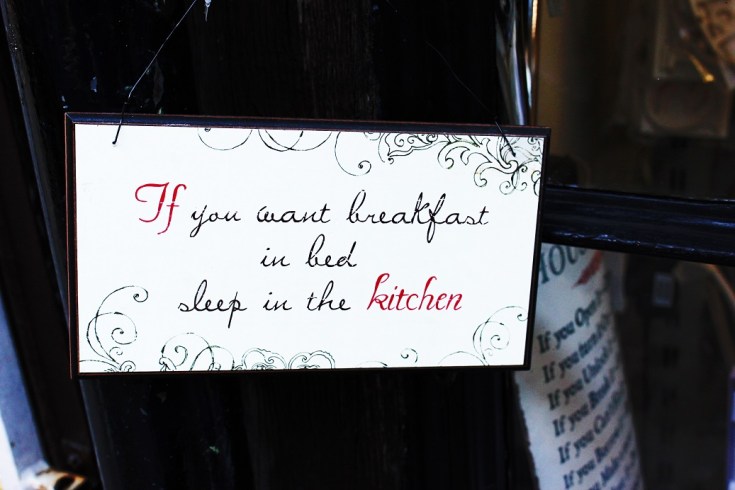 If you want breakfast
in bed
sleep in the kitchen
If you Open
If you turn
If you Unlock
If you Break
If you
If you
If you